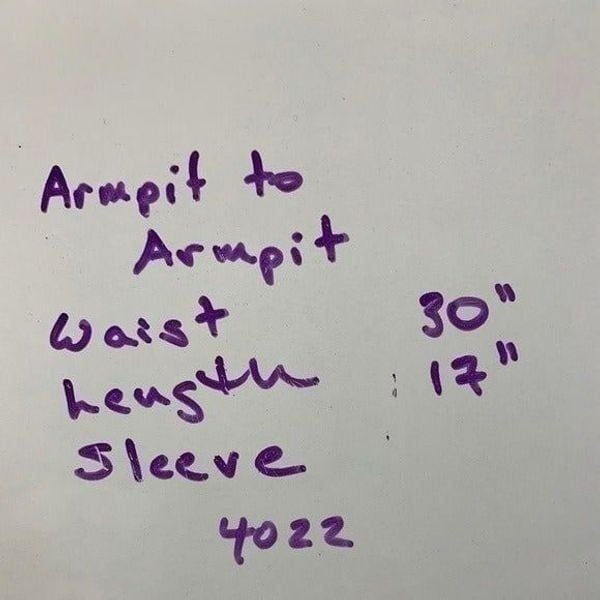 Armpit to
Armpit
Waist 30"
Length 17"
Sleeve
4022